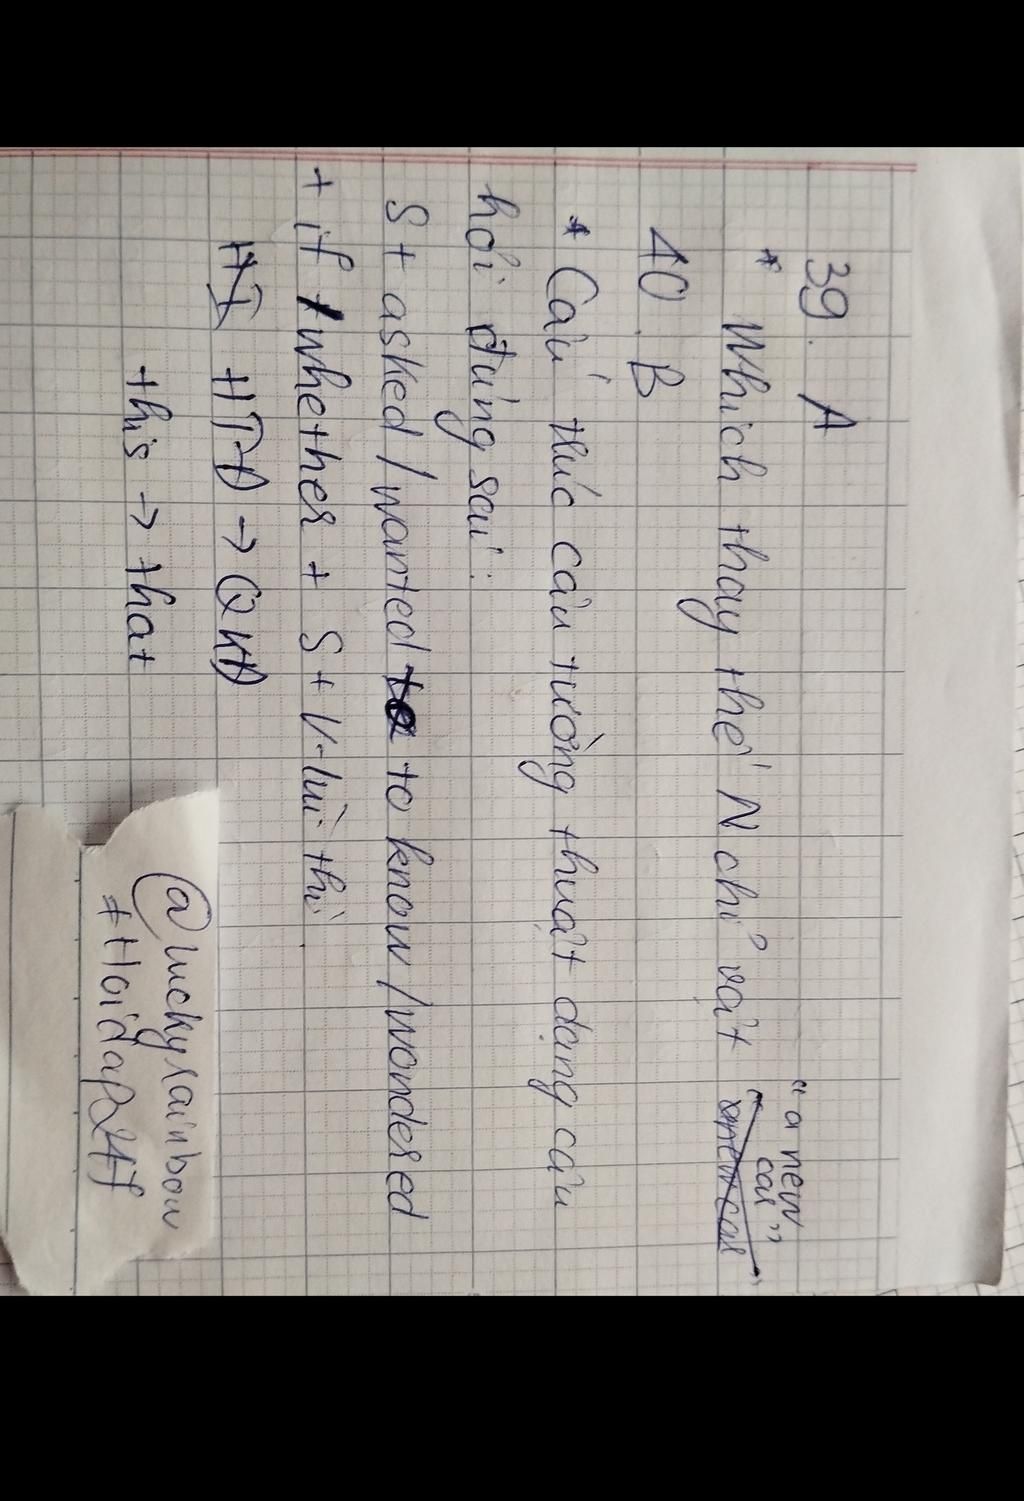 39. A
* Which thay thế N chỉ vật "a new car"
40. B
* Câu thức câu tường thuật dạng câu
hỏi đúng sai:
S + asked / wanted to know / wondered
+ if / whether + S + V-lùi thì
HTĐ → QKĐ
this → that
@luckyrainbow
#Hoidap247